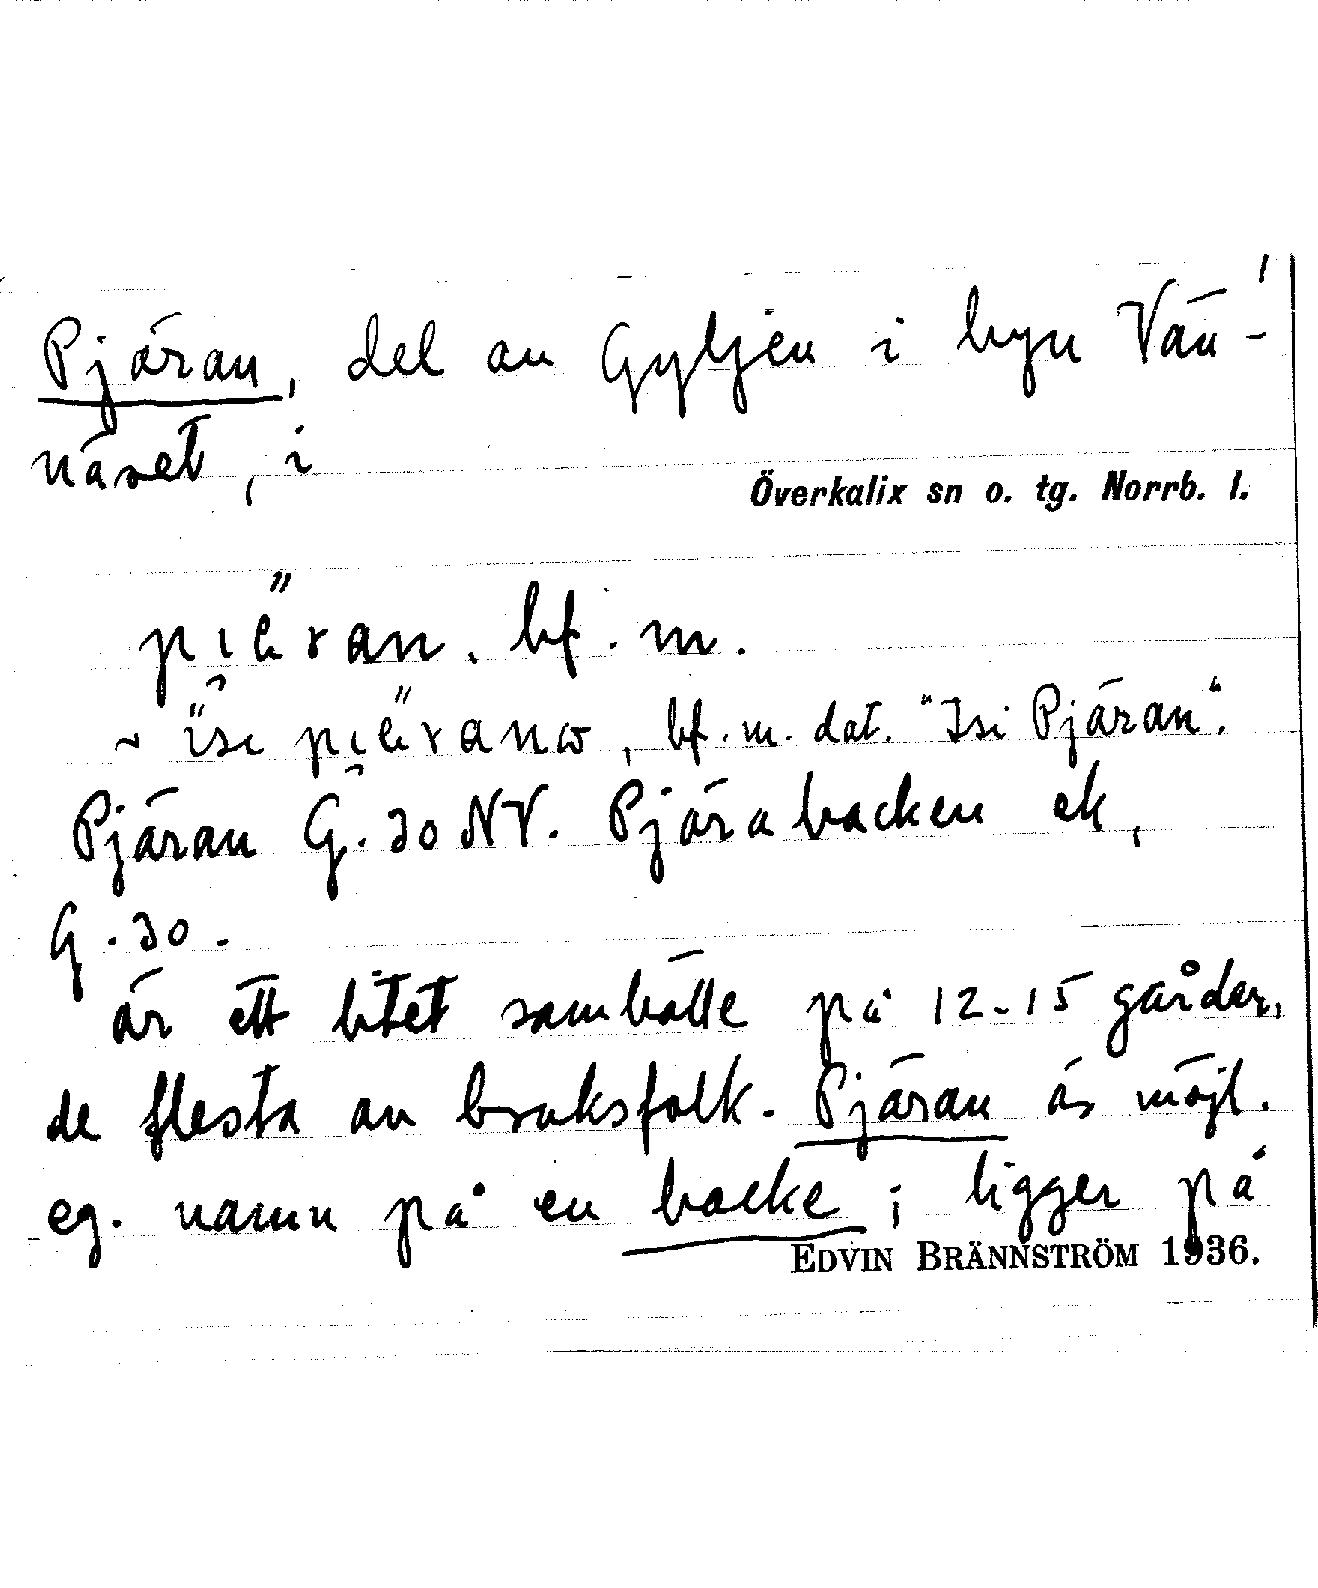 Pjäran, del av Gyljen i byn Vän-
näset, i
Överkalix sn o. tg. Norrb. l.
bf. m.
~ bf. m. dat. "Isi Pjäran".
Pjäran G.30 NV. Pjärabacken ek,
G.30.
är ett litet samhälle på 12-15 gårder,
de flesta av bruksfolk. Pjäran är möjl.
eg. namn på en backe; ligger på
EDVIN BRÄNNSTRÖM 1936.